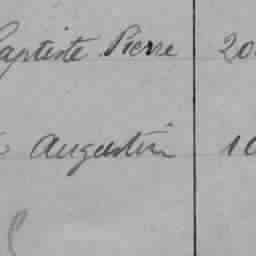 Baptiste Pierre 20
Augustin 10